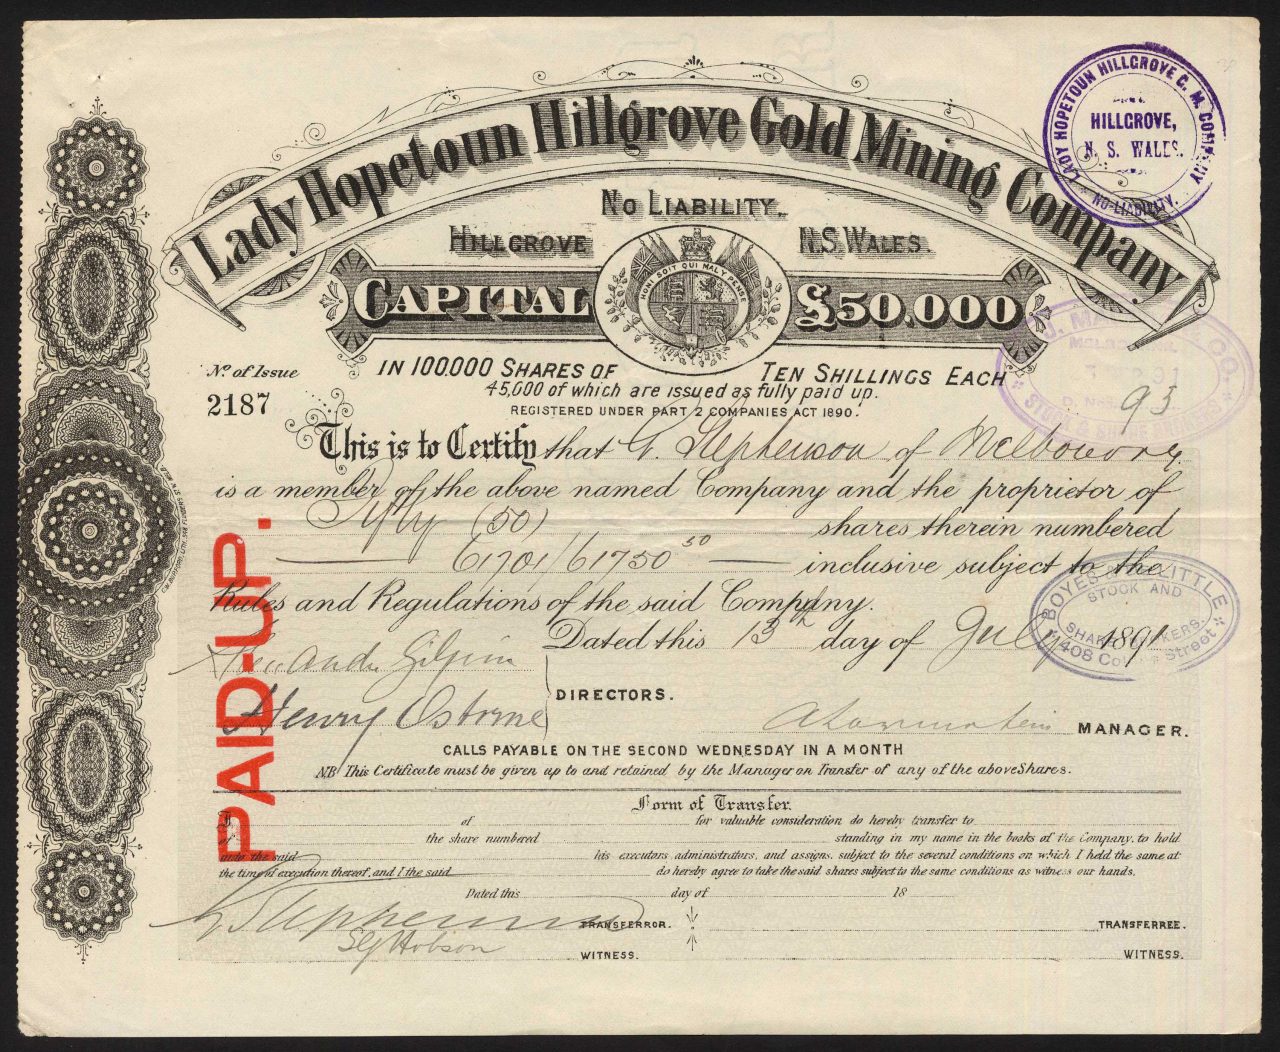 Lady Hopetoun Hillgrove Gold Mining Company
LADY HOPETOUN HILLGROVE G. M. COMPANY
HILLGROVE,
N. S. WALES.
NO-LIABILITY.
NO LIABILITY.
HILLGROVE N.S. WALES
HONI SOIT QUI MAL Y PENSE
CAPITAL £50.000
IN 100.000 SHARES OF TEN SHILLINGS EACH
45,000 of which are issued as fully paid up.
REGISTERED UNDER PART 2 COMPANIES ACT 1890.
No of Issue
2187
STOCK & SHARE BROKERS
93
This is to Certify that G. Stephenson of Melbourne
is a member of the above named Company and the proprietor of
Fifty (50) shares therein numbered
61701/61750 50 inclusive subject to the
Rules and Regulations of the said Company.
Dated this 13th day of July 1891
BOYES & LITTLE
STOCK AND
SHARE BROKERS.
408 Collins Street
PAID-UP.
Gilpin
Henry Osborne
DIRECTORS.
MANAGER.
CALLS PAYABLE ON THE SECOND WEDNESDAY IN A MONTH
N.B. This Certificate must be given up to and retained by the Manager on Transfer of any of the above Shares.
Form of Transfer.
I of for valuable consideration do hereby transfer to
the share numbered standing in my name in the books of the Company, to hold
unto the said his executors, administrators, and assigns, subject to the several conditions on which I held the same at
the time of execution thereof, and I the said do hereby agree to take the said shares subject to the same conditions as witness our hands.
Dated this day of 18
G Stephenson TRANSFERROR. TRANSFERREE.
Hobson WITNESS. WITNESS.